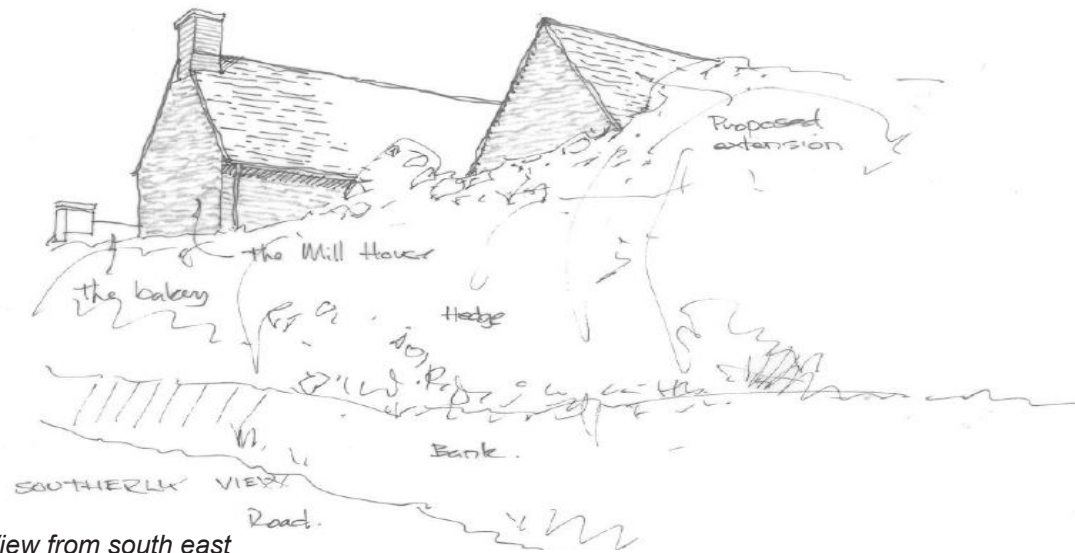 Proposed
extension
the Mill House
the bakery
Hedge
Bank.
SOUTHERLY VIEW
Road.
View from south east